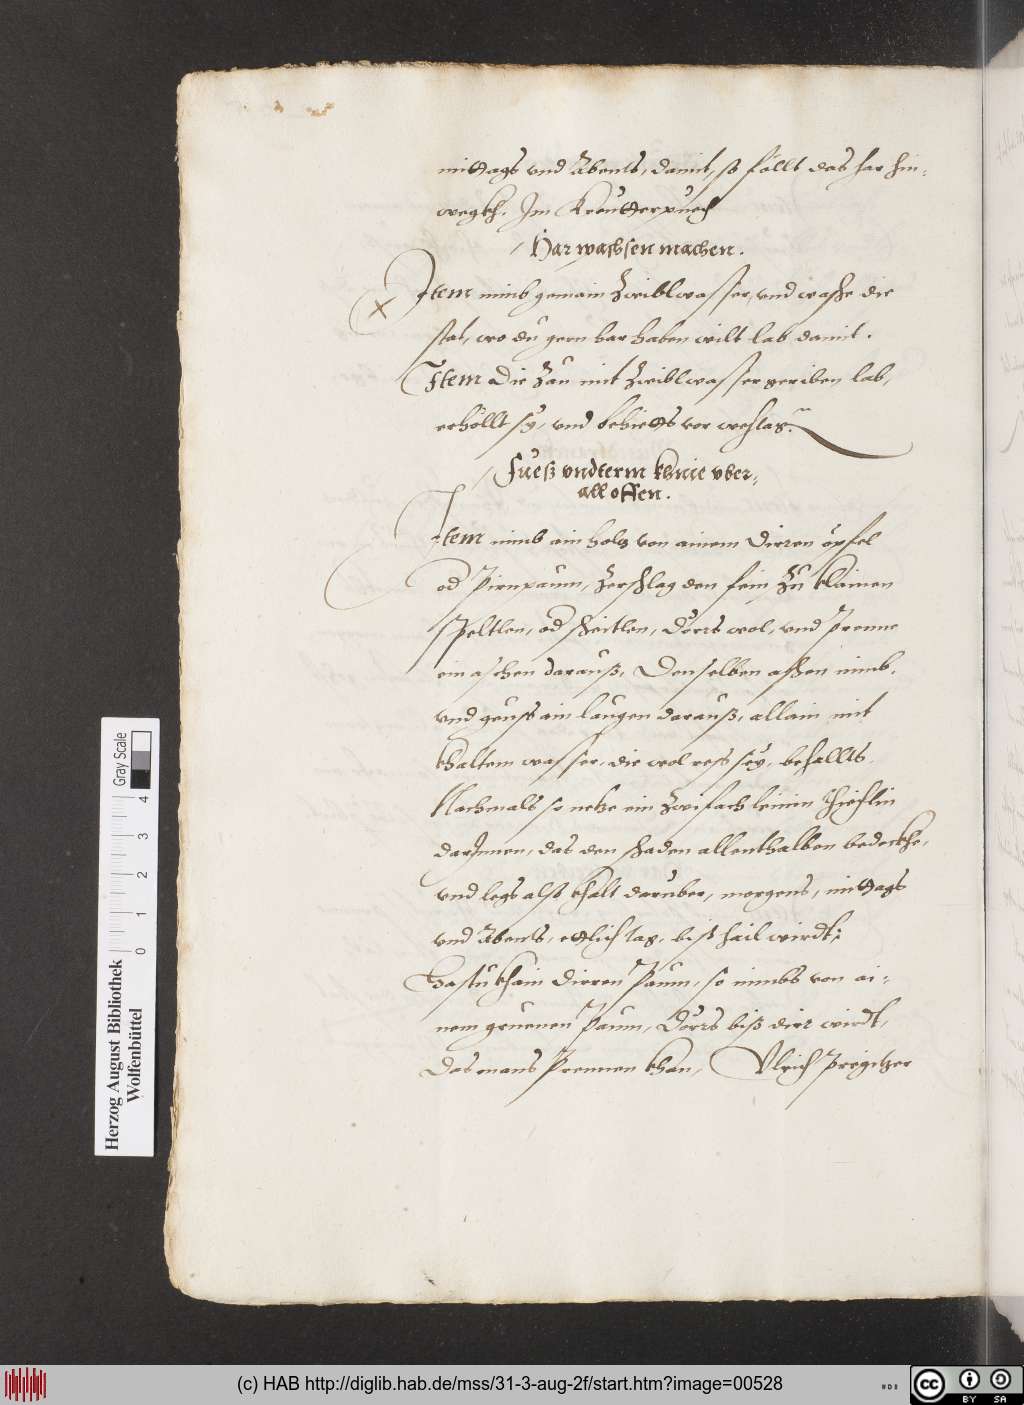 mittags vnd Abents, damit, soföllt das har hin-
wegkh. Im Kreutterpuech
Har wachsen machen.
Item nimb gemain Zwiblwasser, vnd wasche die
stat, wo du gern har haben wilt lab damit.
Item die Zän mit Zwiblwasser geriben lab,
erhöllt sy, vnd behietts vor wehtag.
Fueß vndterm khnie vber-
all offen.
Item nimb ain holtz von ainem dirren öpfel
od Pirnpaum, Zerschlag den fein Zu klainen
Speltlen, od scheitlen, Dörrs wol, vnd Prenne
ein aschen darauß, Denselben aschen nimb,
vnd geuss ain laugen darauß, allain mit
khaltem wasser, die wol ress sey, behallts
Nachmals so netze ein Zwifach leinin Thiechlin
darJnnen, das den schaden allenthalben bedeckhe,
vnd legs also khalt daruber, morgens, mittags
vnd Abents, etlich tag, biß hail wirdt;
Hastu khain dirren Paum, so nimbs von ai-
nem gruenen Paum, Dörrs biß dirr wirdt,
Das mans Prennen khan, Vlrich Prëgitzer
Herzog August Bibliothek
Wolfenbüttel
Gray Scale
0 1 2 3 4
(c) HAB http://diglib.hab.de/mss/31-3-aug-2f/start.htm?image=00528
cc BY SA